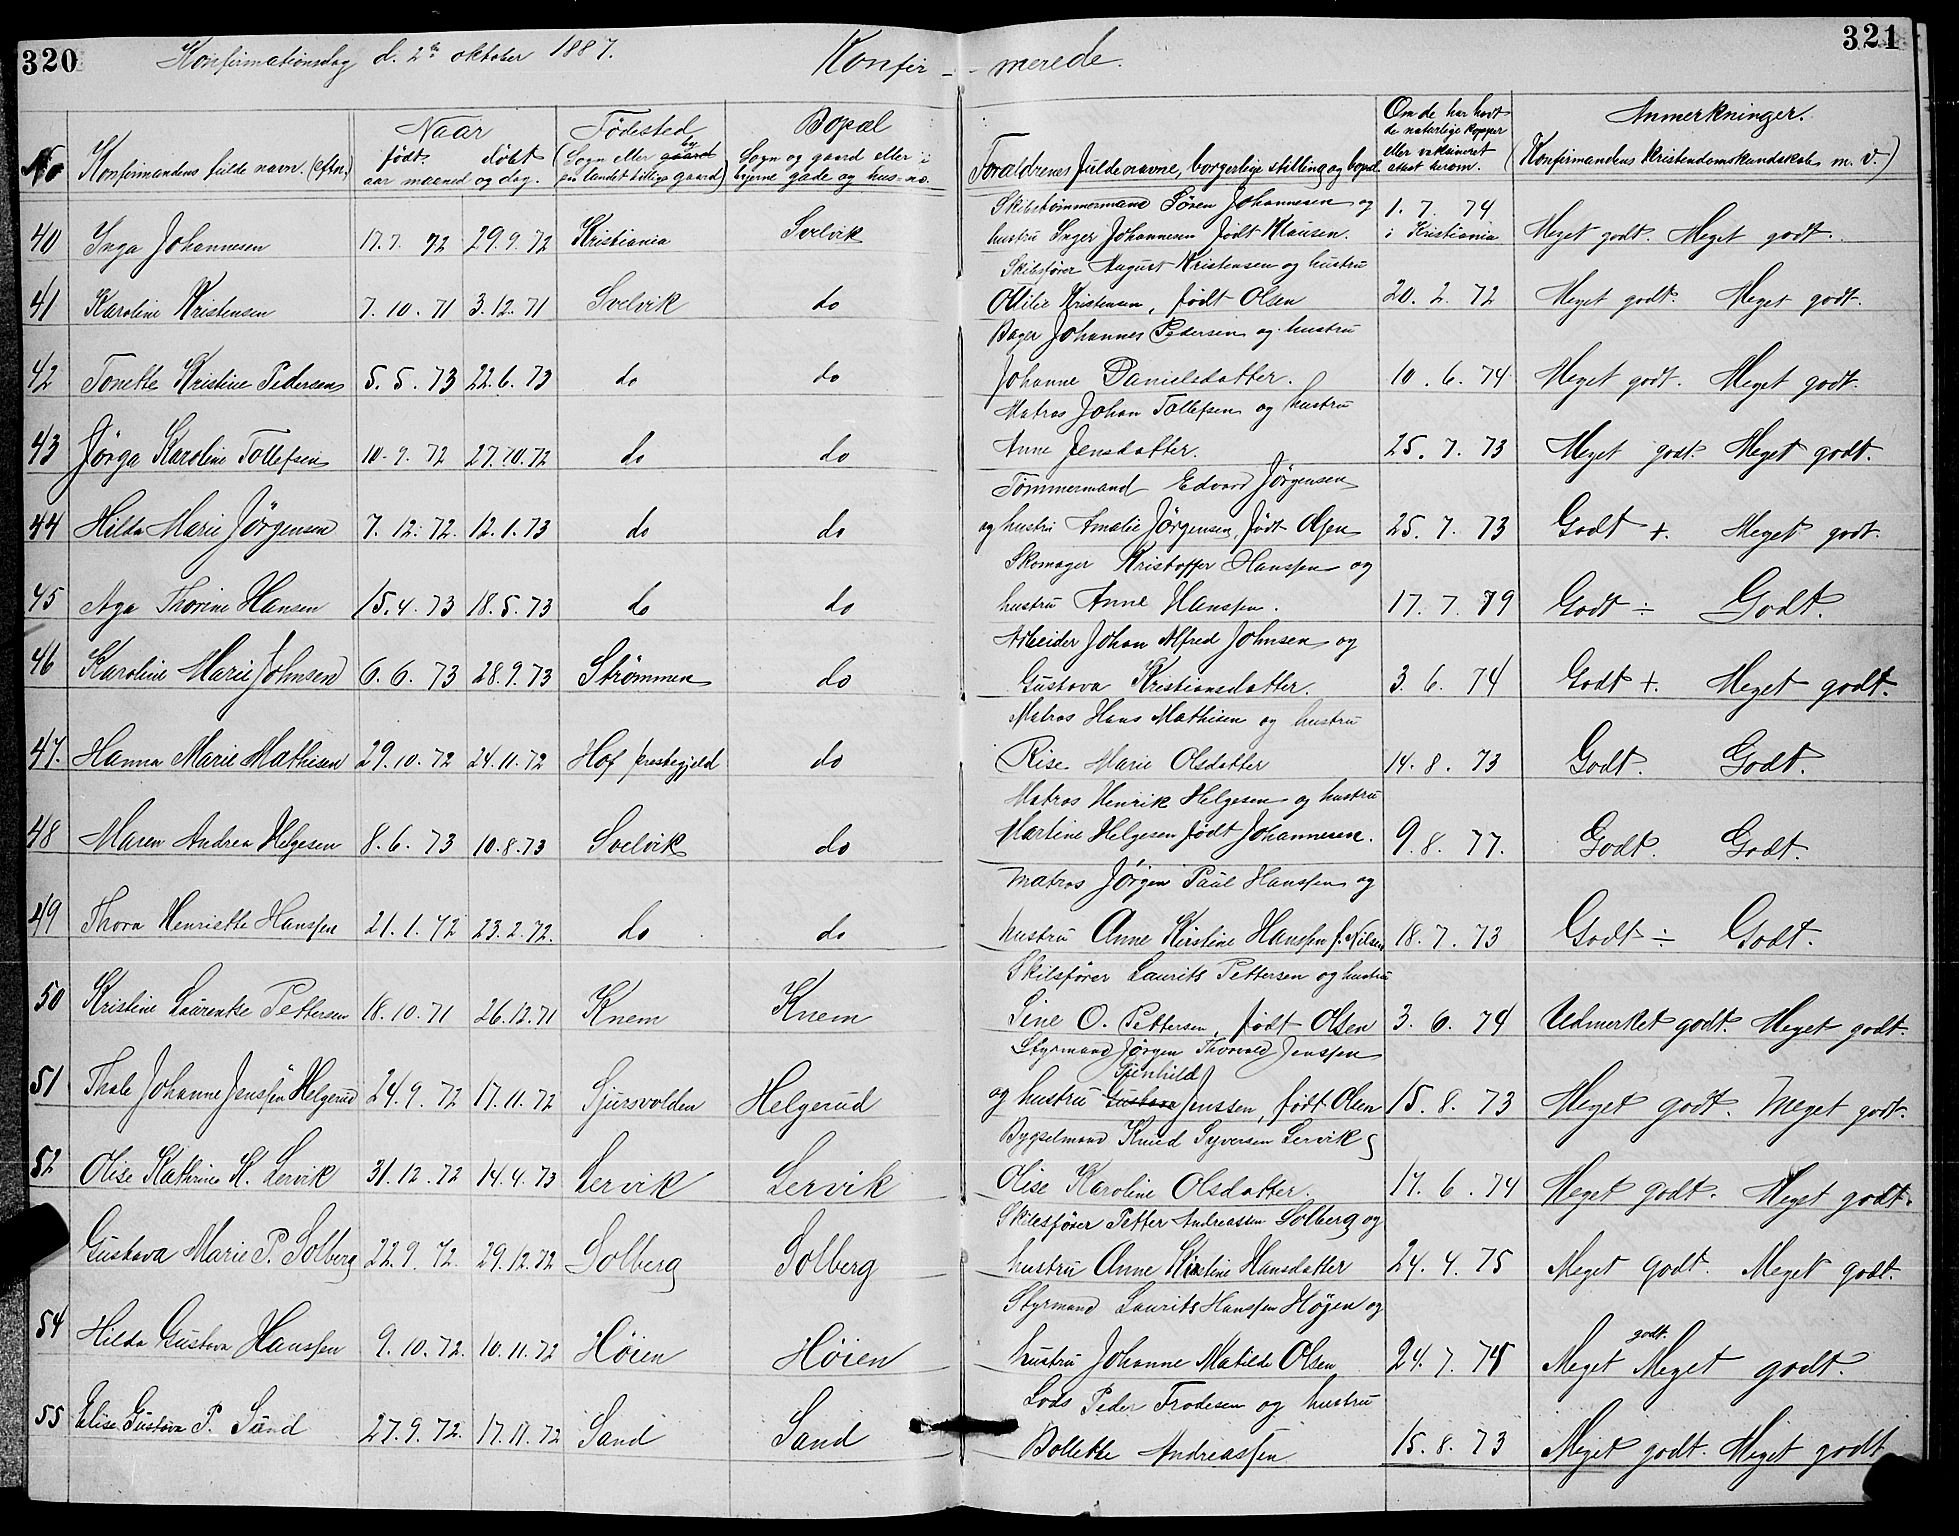 320 Konfirmationsdag d. 2de oktober 1887. Konfir- -merede. 321
No Konfirmandens fulde navn. (eftn.) Naar født døbt aar maaned og dag. Fødested (Sogn eller by gaard paa landet tillige gaard) Bopæl Sogn og gaard eller i byerne gade og hus-no. Forældrenes fulde navne, borgerlige stilling og bopæl. Om de har havt de naturlige kopper eller vaksineret attest herom. Anmerkninger. (Konfirmandens kristendomskundskab m. v.)
40 Inga Johannesen 17.7. 72 29.9.72 Kristiania Svelvik Skibstømmermand Søren Johannesen og 1. 7. 74
hustru Inger Johannesen født Klausen. i Kristiania Meget godt. Meget godt.
41 Karoline Kristensen 7.10.71 3.12.71 Svelvik do Skibsfører August Kristensen og hustru
Otilie Kristensen, født Olsen 20. 2. 72 Meget godt. Meget godt.
42 Tonette Kristine Pedersen 5. 5. 73 22.6.73 do do Bager Johannes Pedersen og hustru
Johanne Danielsdatter. 10. 6. 74 Meget godt. Meget godt.
43 Jørga Karoline Tollefsen 10.9.72 27.10.72 do do Matros Johan Tollefsen og hustru
Anne Jensdatter. 25. 7. 73 Meget godt. Meget godt.
44 Hilda Marie Jørgensen 7.12.72. 12.1.73 do do Tømmermand Edvard Jørgensen
og hustru Amalie Jørgensen, født Olsen 25. 7. 73 Godt +. Meget godt.
45 Aga Thorine Hansen 15.4.73 18.5.73 do do Skomager Kristoffer Hanssen og
hustru Anne Hanssen. 17. 7. 79 Godt ÷ Godt.
46 Karoline Marie Johnsen 6.6. 73 28.9.73 Strømmen do Arbeider Johan Alfred Johnsen og
Gustava Kristiansdatter. 3. 6. 74 Godt +. Meget godt.
47. Hanna Marie Mathisen 29.10.72 24.11.72 Hof prestegjeld do Matros Hans Mathisen og hustru
Rise Marie Olsdatter 14. 8. 73 Godt. Godt.
48 Maren Andrea Helgesen 8.6. 73 10.8.73 Svelvik do Matros Henrik Helgesen og hustru
Martine Helgesen født Johannesen. 9. 8. 77. Godt. Godt.
49 Thora Henriette Hanssen 21. 1. 72 23.2.72. do do Matros Jørgen Paul Hanssen og
hustru Anne Kirstine Hanssen f. Nilsen 18. 7. 73 Godt ÷ Godt.
50 Kristine Laurentse Pettersen 18.10.71 26.12.71 Knem Knem Skibsfører Laurits Pettersen og hustru
Line O. Pettersen, født Olsen 3. 6. 74 Udmerket godt. Meget godt.
51 Thale Johanne Jenssen Helgerud 24.9.72 17.11.72 Sjursvolden Helgerud Styrmand Jørgen Thorvald Jenssen
Gunhild
og hustru Gustava Jenssen, født Olsen 15. 8. 73 Meget godt. Meget godt.
52 Olise Kathrine K. Lervik 31.12.72 14.4.73 Lervik Lervik Bygselmand Knud Syversen Lervik &
Olise Karoline Olsdatter. 17. 6. 74 Meget godt. Meget godt.
Gustava Marie P. Solberg 22.9.72. 29.12.72 Solberg Solberg Skibsfører Petter Andreassen Solberg og
hustru Anne Kirstine Hansdatter 24. 4. 75 Meget godt. Meget godt.
54 Hilda Gustava Hanssen 9.10.72. 10.11.72 Høien Høien Styrmand Laurits Hanssen Høyen og
hustru Johanne Matilde Olsen 24. 7. 75 Meget godt. Meget godt.
55 Elise Gustava P. Sand 27.9.72. 17.11.72 Sand Sand Lods Peder Frodesen og hustru
Bollette Andreassen 15. 8. 73 Meget godt. Meget godt